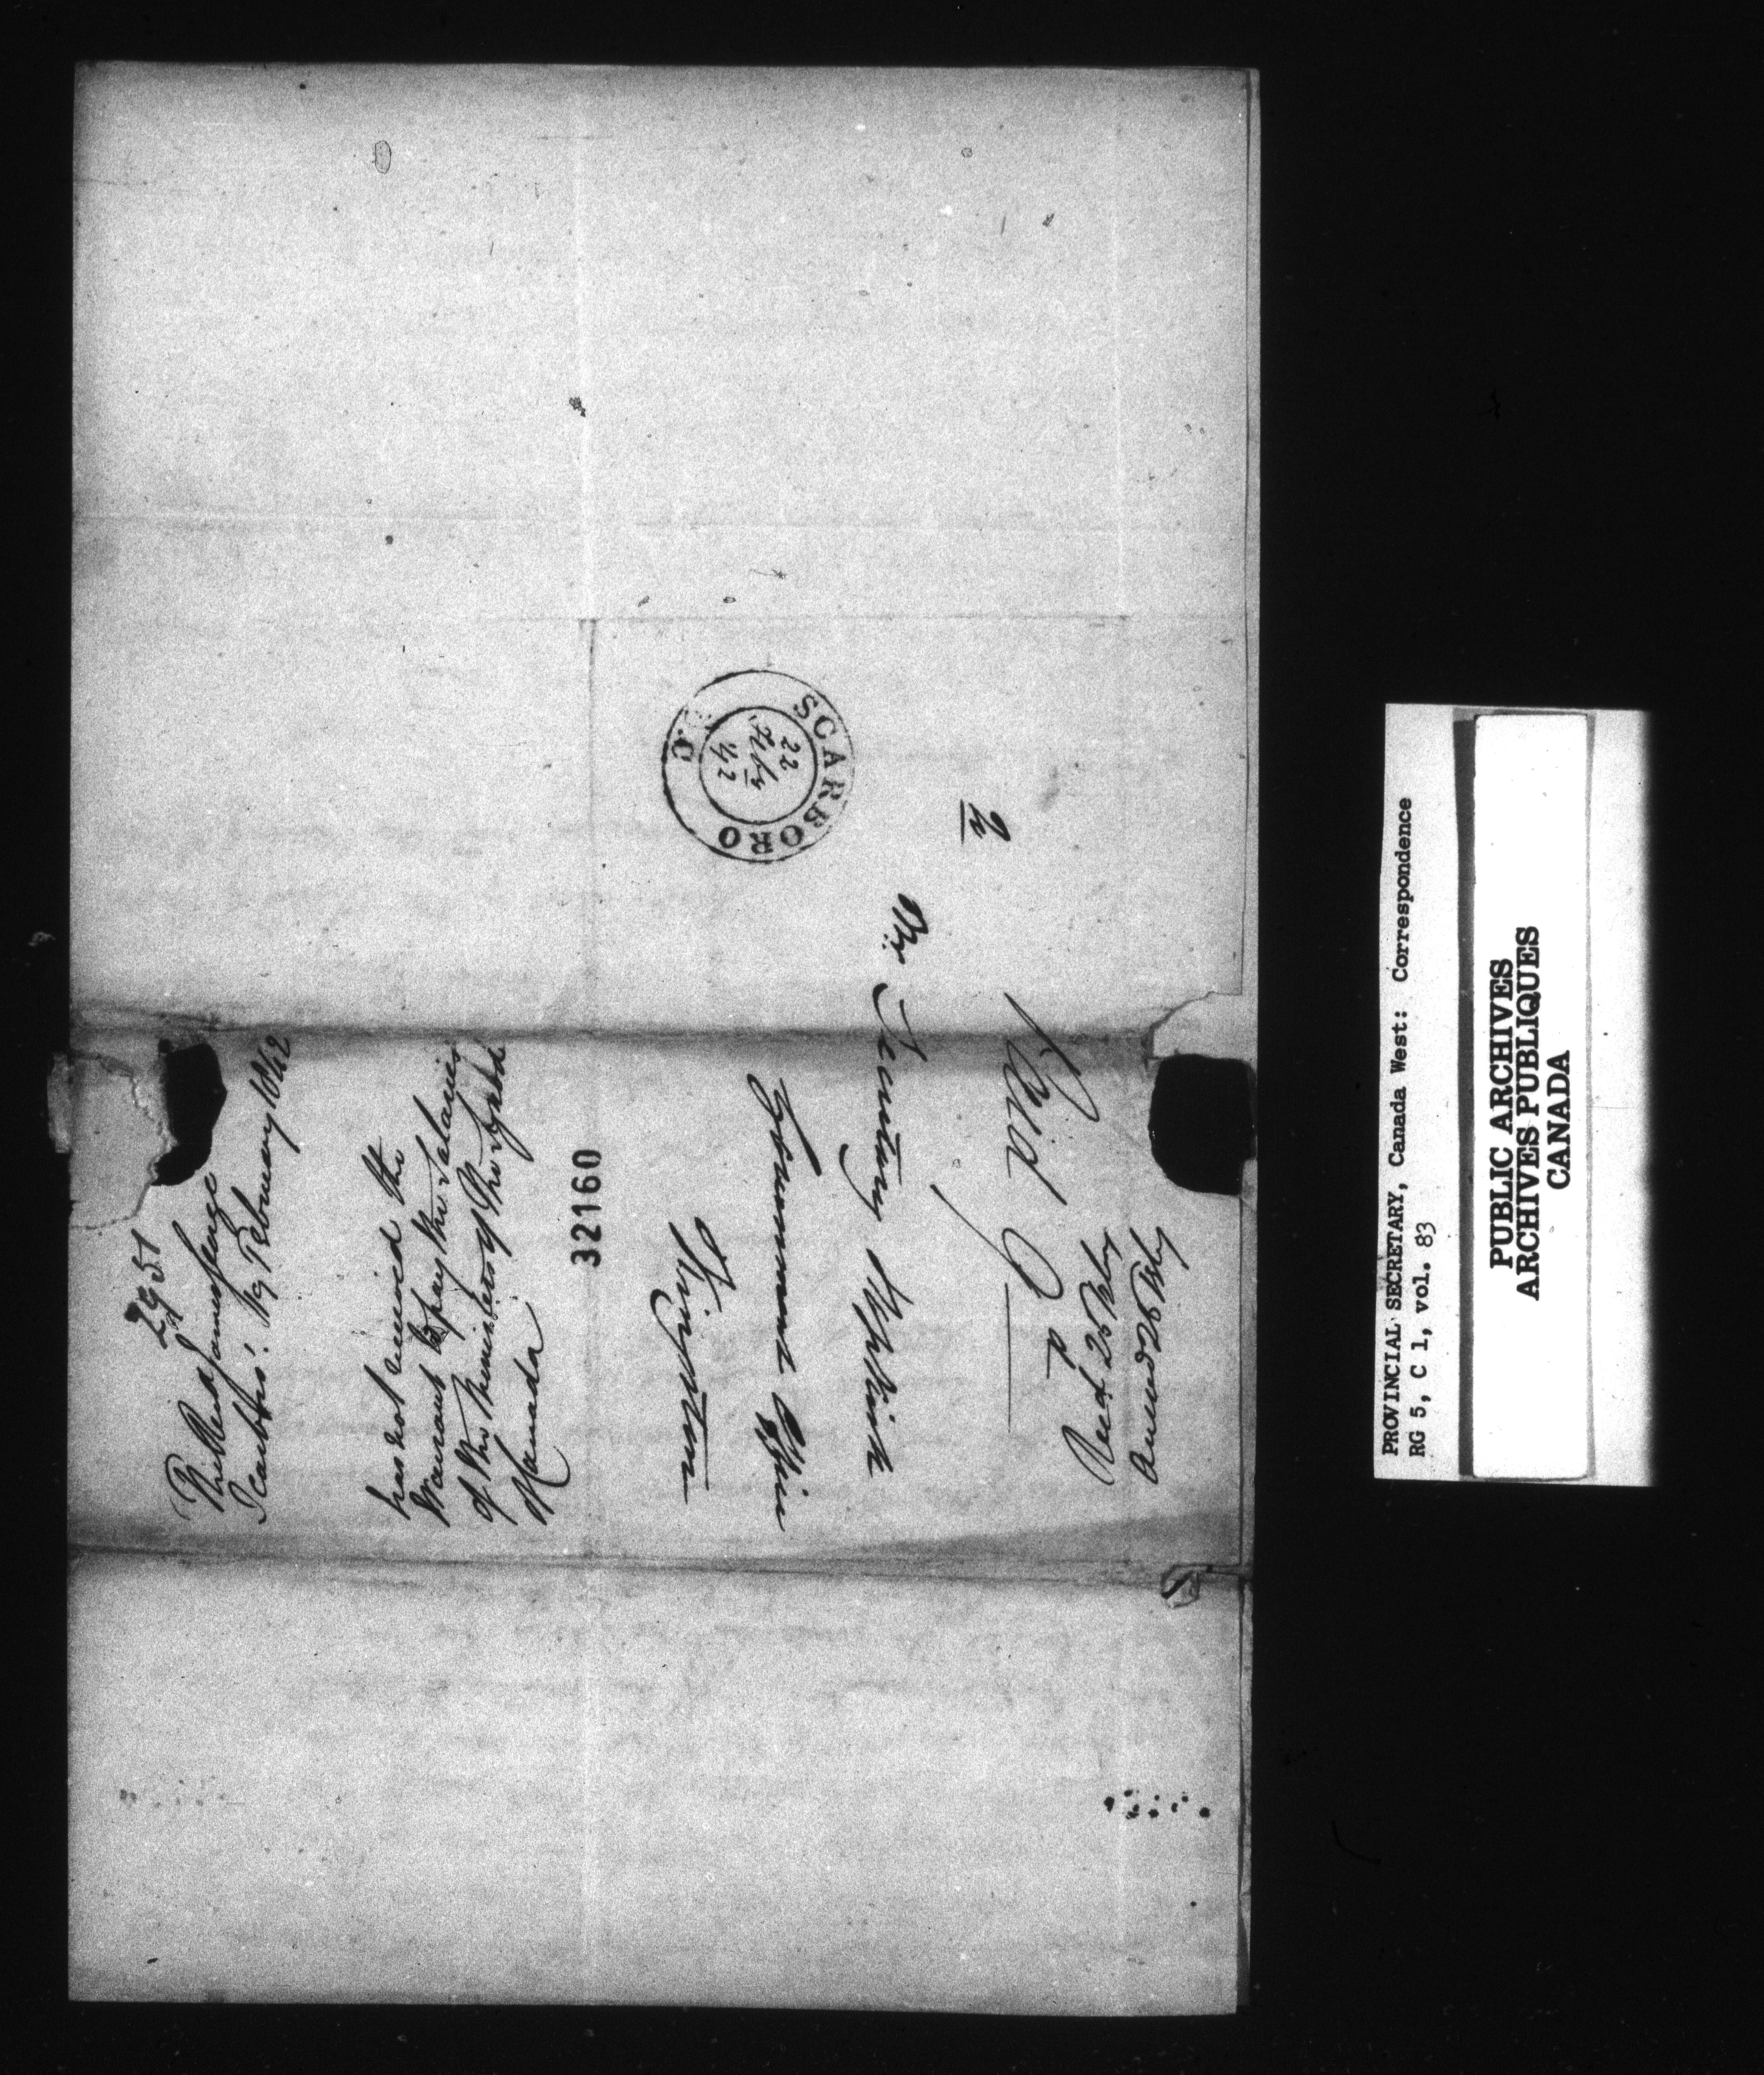 2951
The Revd James George
Scarbro': 19 February 1842
has not received the
Warrant to pay the Salaries
of the Ministers of the Synod
of Canada
32160
SCARBORO U.C
22
Feby
42
2
Mr Secretary
Government Office
Kingston
Recd 25 Feby
Ansd 26 Feby
PROVINCIAL SECRETARY, Canada West: Correspondence
RG 5, C 1, vol. 83
PUBLIC ARCHIVES
ARCHIVES PUBLIQUES
CANADA